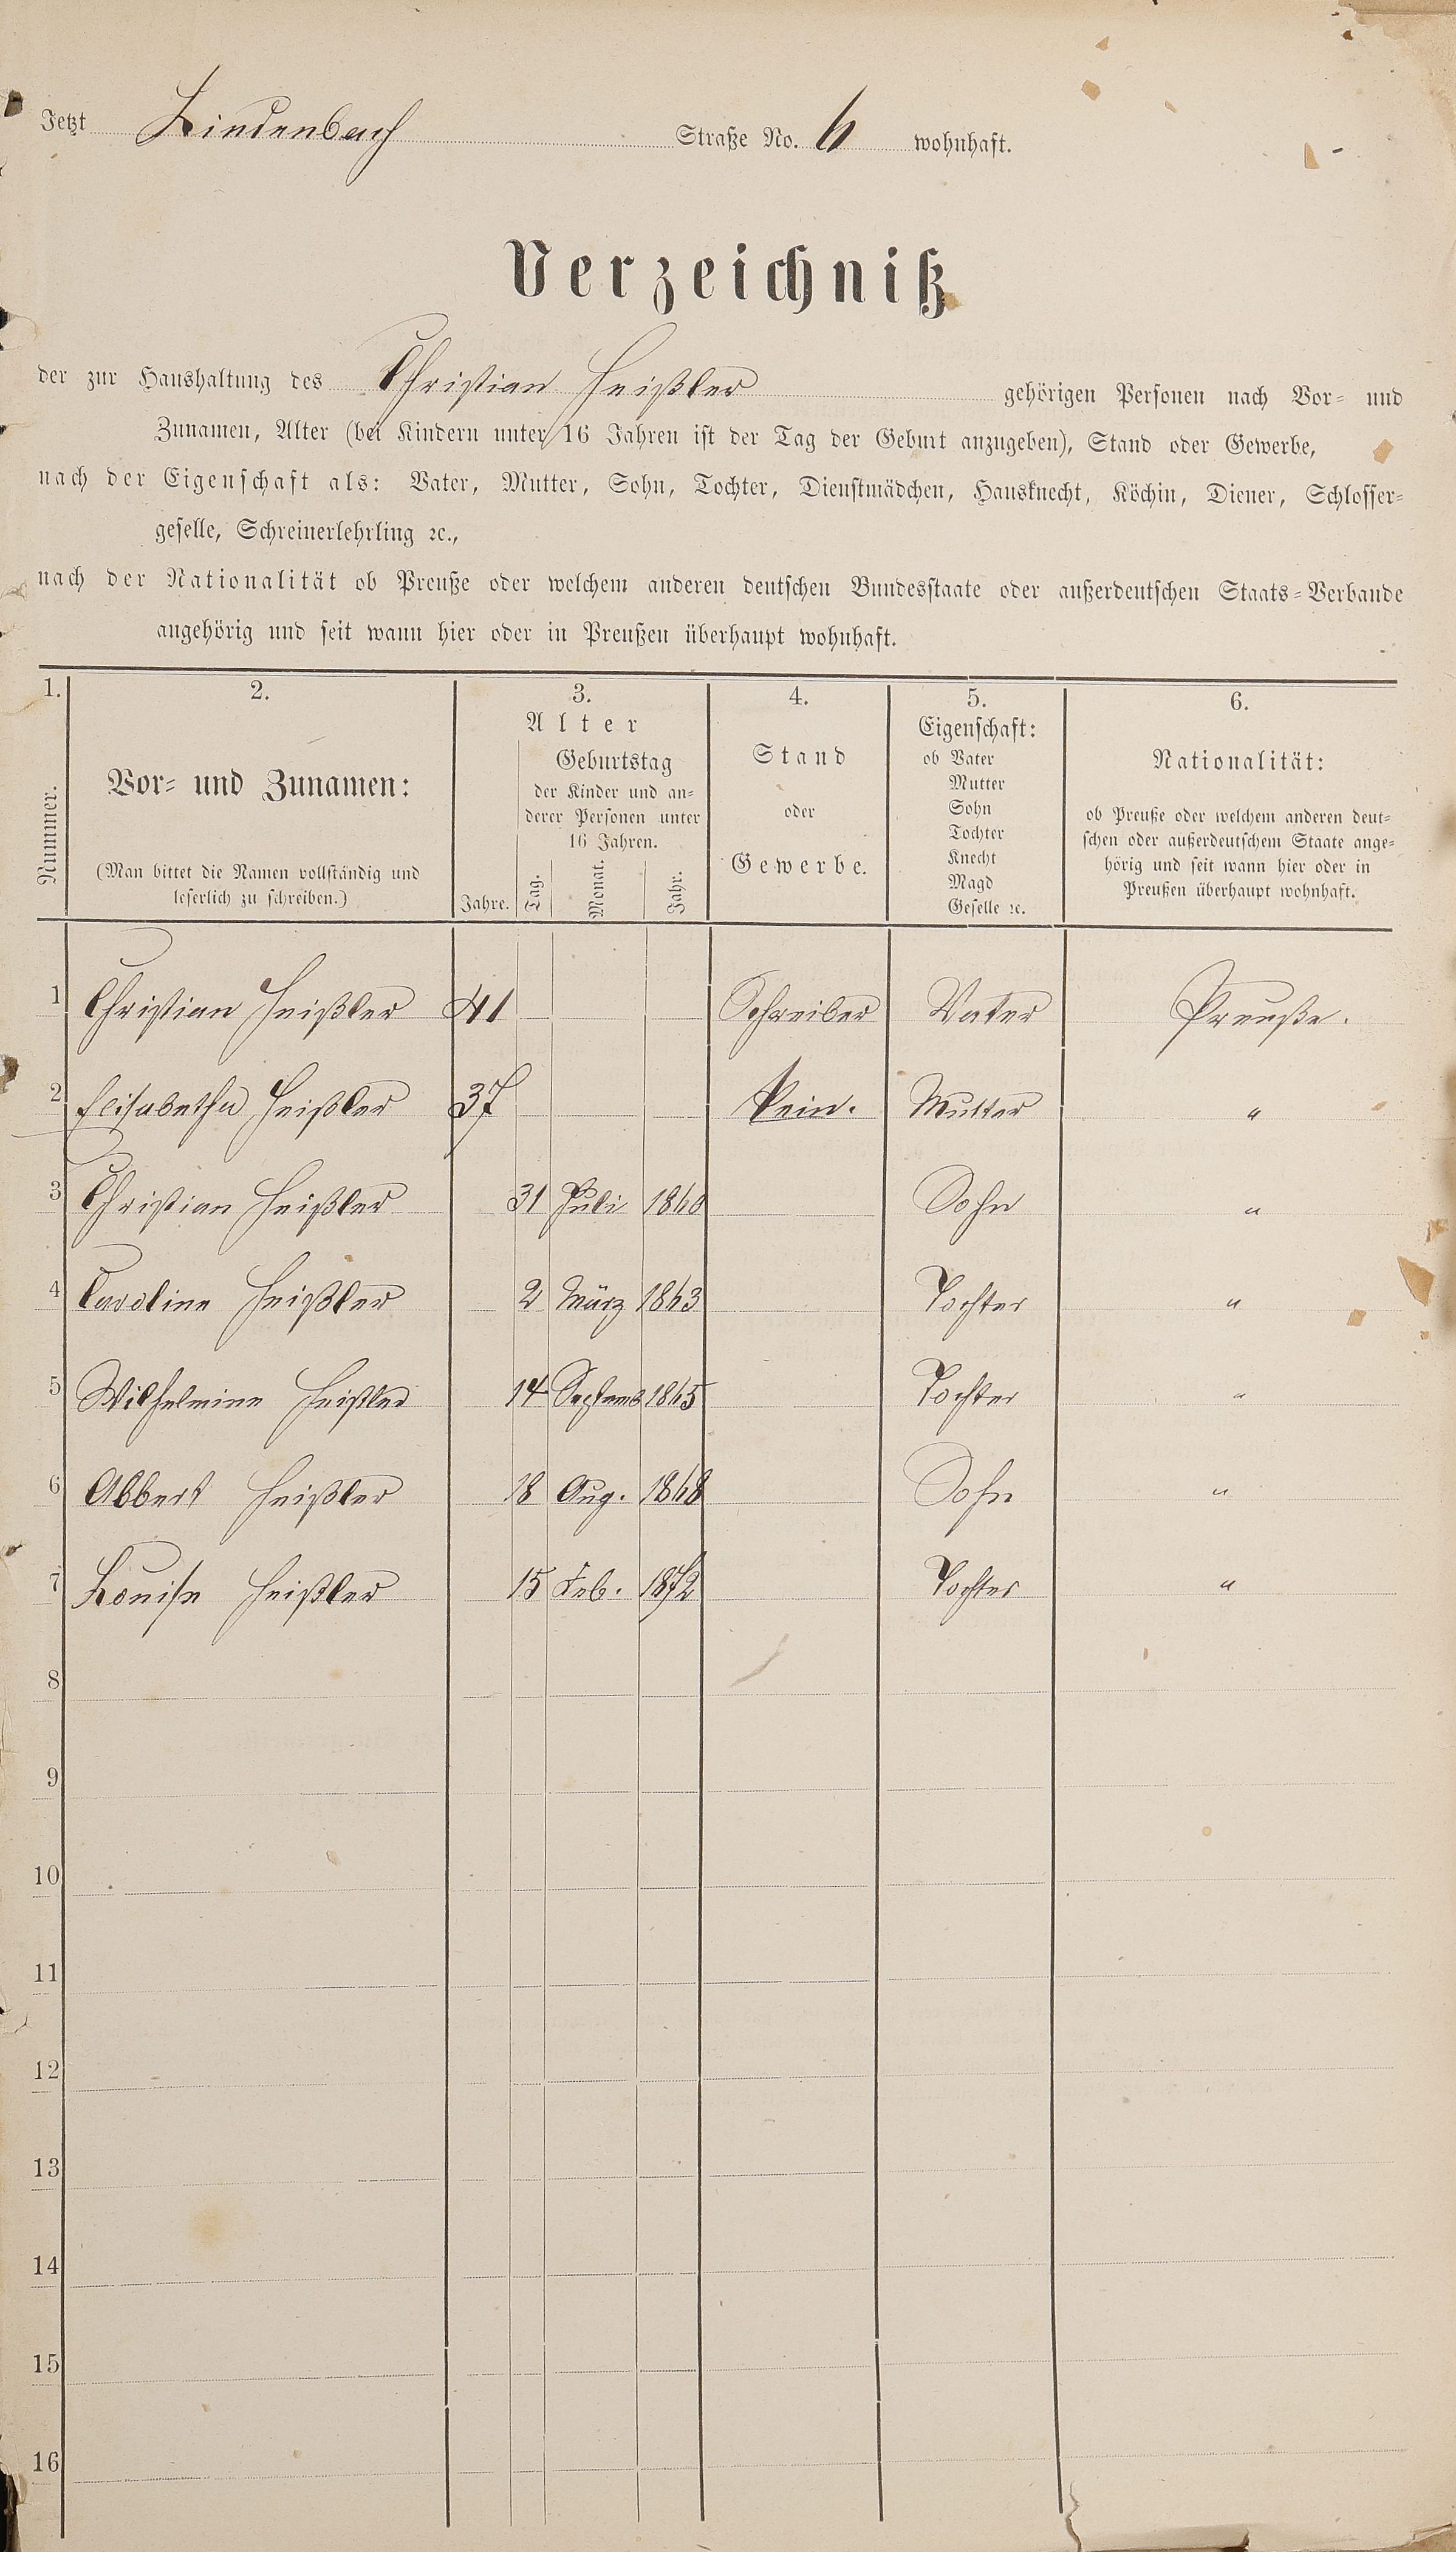 Jetzt Lindenbach Straße No. 6 wohnhaft.
Verzeichniß
der zur Haushaltung des Christian Heißler gehörigen Personen nach Vor- und
Zunamen, Alter (bei Kindern unter 16 Jahren ist der Tag der Geburt anzugeben), Stand oder Gewerbe,
nach der Eigenschaft als: Vater, Mutter, Sohn, Tochter, Dienstmädchen, Hausknecht, Köchin, Diener, Schlosser-
geselle, Schreinerlehrling ꝛc.,
nach der Nationalität ob Preuße oder welchem anderen deutschen Bundesstaate oder außerdeutschen Staats-Verbande
angehörig und seit wann hier oder in Preußen überhaupt wohnhaft.
1.
Nummer.
2.
Vor- und Zunamen:
(Man bittet die Namen vollständig und
leserlich zu schreiben.)
3.
Alter
Geburtstag
der Kinder und an-
derer Personen unter
16 Jahren.
Jahre. Tag. Monat. Jahr.
4.
Stand
oder
Gewerbe.
5.
Eigenschaft:
ob Vater
Mutter
Sohn
Tochter
Knecht
Magd
Geselle ꝛc.
6.
Nationalität:
ob Preuße oder welchem anderen deut-
schen oder außerdeutschem Staate ange-
hörig und seit wann hier oder in
Preußen überhaupt wohnhaft.
1 Christian Heißler 41 Schreiber Vater Preuße.
2 Elisabetha Heißler 37 Mutter "
3 Christian Heißler 31 Juli 1860 Sohn "
4 Caroline Heißler 2 März 1863 Tochter "
5 Wilhelmine Heißler 14 Septemb 1865 Tochter "
6 Albert Heißler 18 Aug. 1868 Sohn "
7 Louise Heißler 15 Feb. 1872 Tochter "
8
9
10
11
12
13
14
15
16